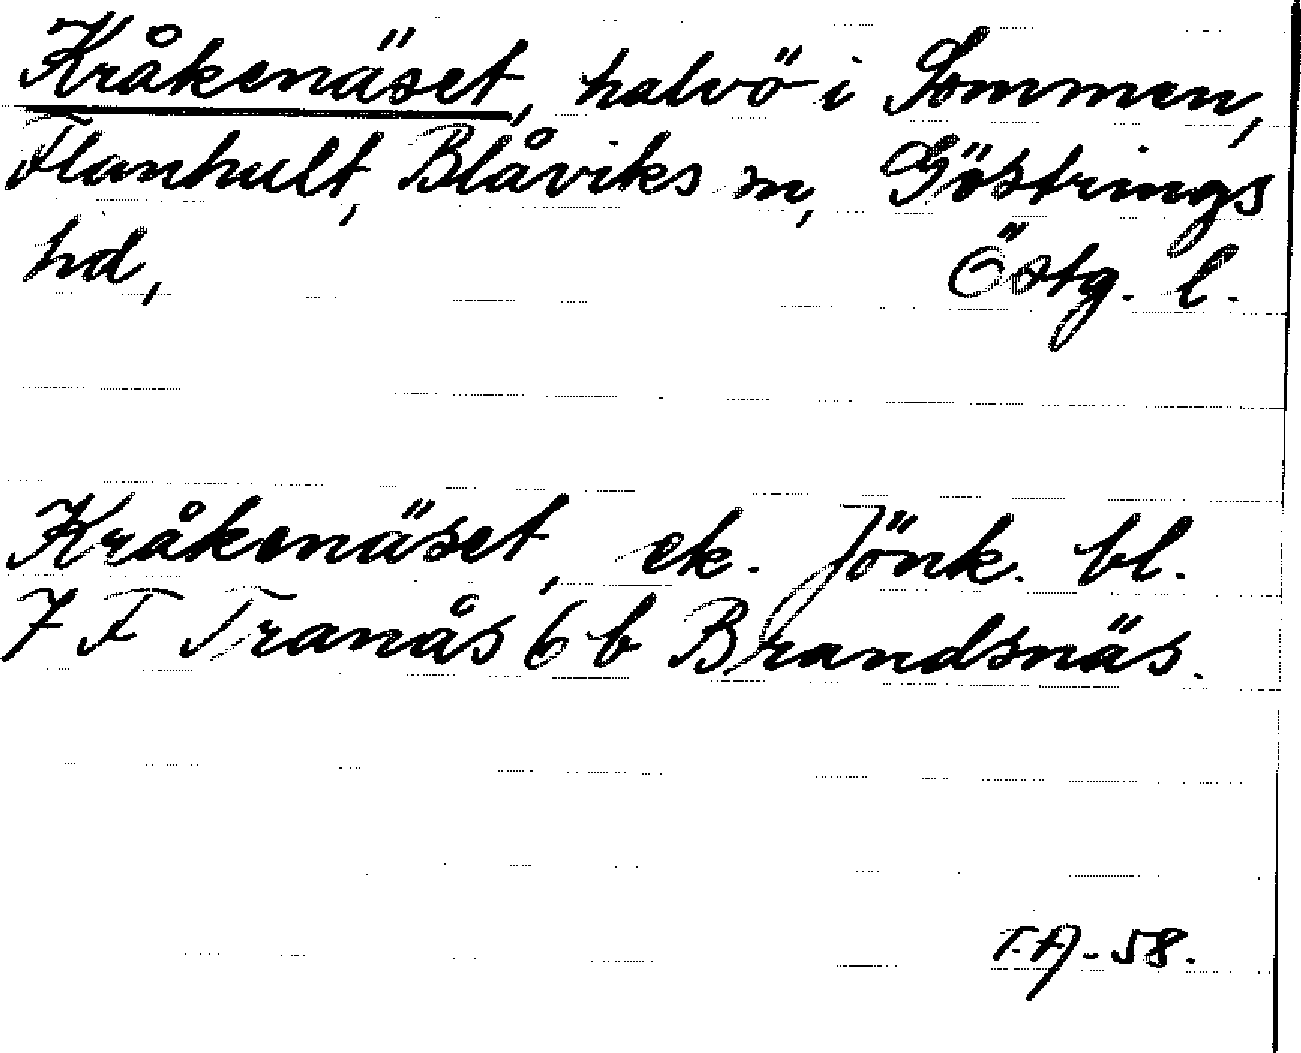 Kråkenäset, halvö i Sommen,
Flanhult, Blåviks sn, Göstrings
hd, Östg. l.
Kråkenäset, ek. Jönk. bl.
7 F Tranås 6 b Brandsnäs.
T.A-58.